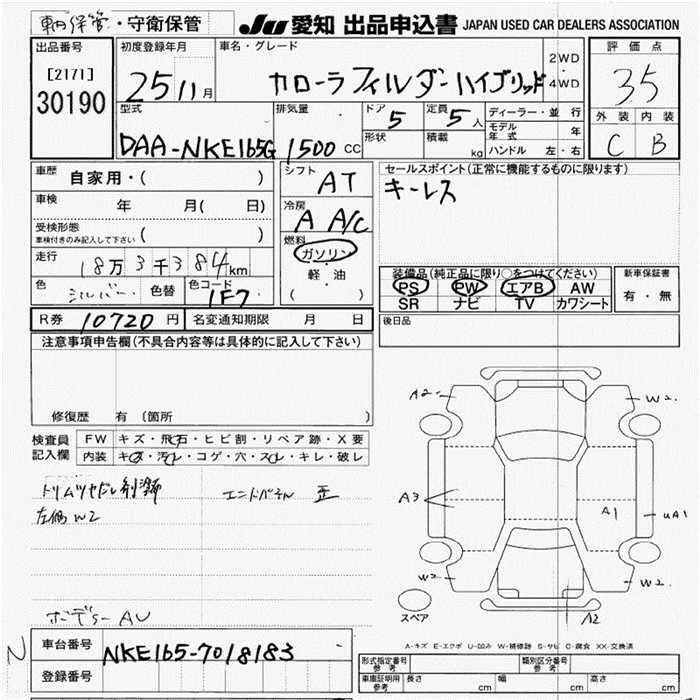 車内保管・守衛保管
JU 愛知 出品申込書 JAPAN USED CAR DEALERS ASSOCIATION
出品番号
[2171]
30190
初度登録年月
25 11月
車名・グレード
カローラフィルダーハイブリッド
2WD
・
4WD
評価点
35
外装 内装
C B
型式
DAA-NKE165G
排気量
1500 CC
ドア
5
形状
定員
5人
積載
kg
ディーラー・並行
モデル年式 年
ハンドル 左・右
車歴
自家用・( )
車検
年 月( 日)
受検形態
車検付きのみ記入して下さい ( )
走行
18万3千384km
色
シルバー
色替
色コード
1F7
シフト
AT
冷房
A A/C
燃料
ガソリン
軽・油
( )
セールスポイント(正常に機能するものに限ります)
キーレス
装備品(純正品に限り○をつけてください)
PS PW エアB AW
SR ナビ TV カワシート
新車保証書
有・無
R券 10720 円
名変通知期限 月 日
後日品
注意事項申告欄(不具合内容等は具体的に記入して下さい)
修復歴 有(箇所 )
検査員記入欄
FW キズ・飛石・ヒビ割・リペア跡・X要
内装 キズ・汚レ・コゲ・穴・スレ・キレ・破レ
トリムツヤだし剤跡
エンドパネル 歪
左側W2
ボデーAU
A2
W2
A3
A1
UA1
W2
W2
A2
スペア
A-キズ E-エクボ U-凹み W-補修跡 S-サビ C-腐食 XX-交換済
N
車台番号
NKE165-7018183
登録番号
形式指定番号
参考
類別区分番号
参考
車庫証明用
参考
長さ cm
幅 cm
高さ cm